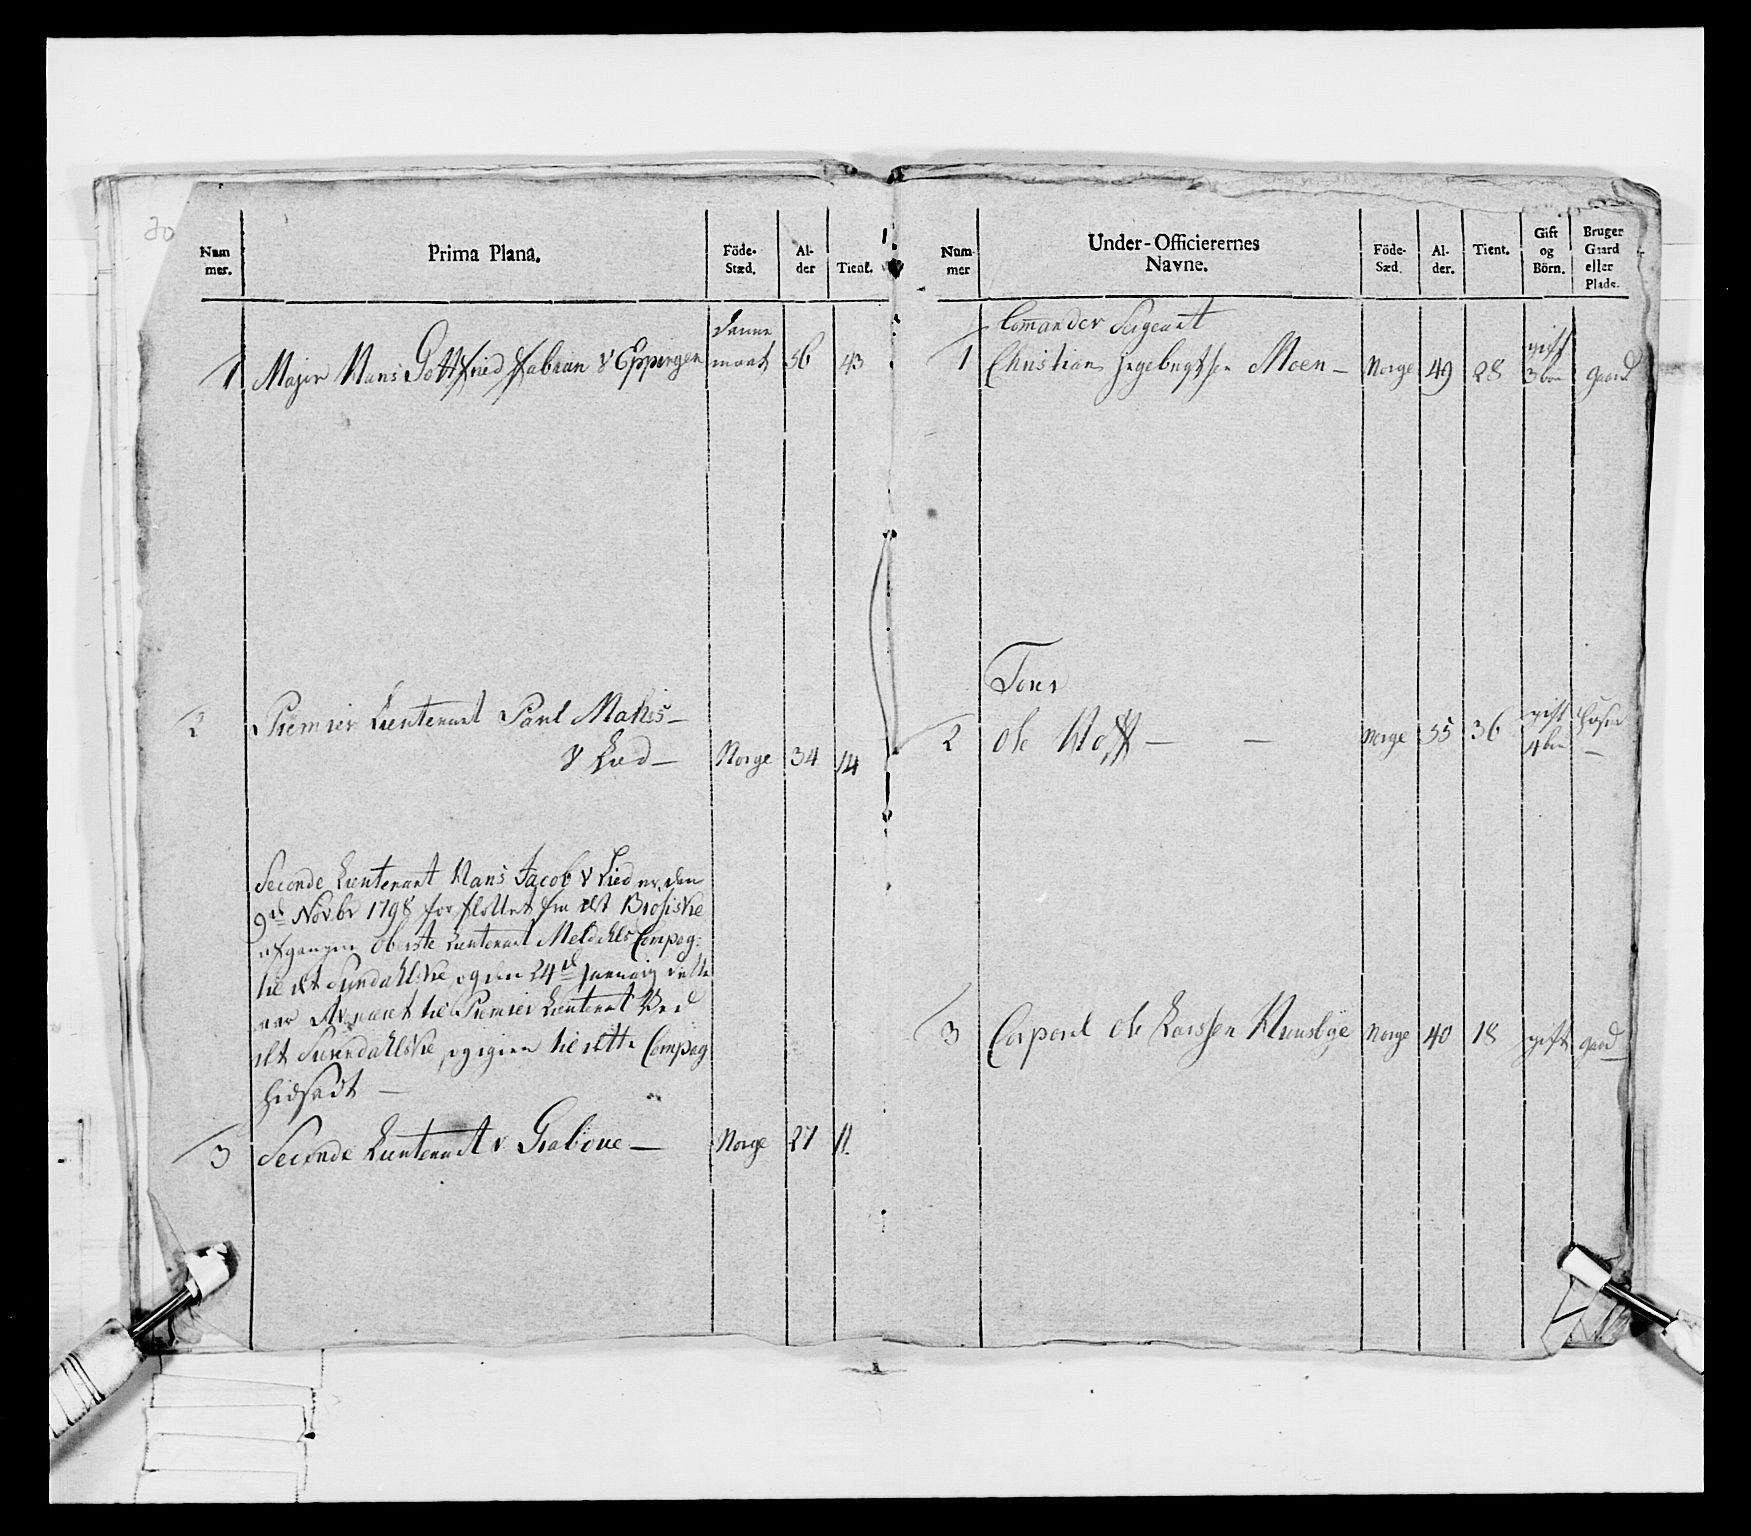 20
Num
mer.
Prima Plana.
Föde-
Stæd.
Al-
der
Tient.
1
Danne
Major Hans Gottfried Fabian V Eppingen
mark
56
43
2
Premier Lieutenant Paul Mathis
V Lied
Norge
34
14
Seconde Lieutenant Hans Jacob V Lied er den
9d Novbr 1798 for flöttet fra det
afgangne Oberste Lieutenant Meldahls Compag:
til det Surendahlske, og den 24d January dette
aar Avancet til Premier Lieutenant Ved
det Surendahlske, og igien til dette Compag
hidsadt
3
Seconde Lieutenant V Grabove
Norge
27
11
Num-
mer
Under-Officierernes
Navne.
Föde-
Sæd.
Al-
der.
Tient.
Gift
og
Börn.
Bruger
Gaard
eller
Plads.
Comander Sergeant
1
Christian Ingebrigtsen Moen
Norge
49
28
gift
3 börn
gaard
Four
2
Ole Hoff
Norge
55
36
gift
4 börn
3
Corporl Ole Larssen Huusbye
Norge
40
18
gift
gaard